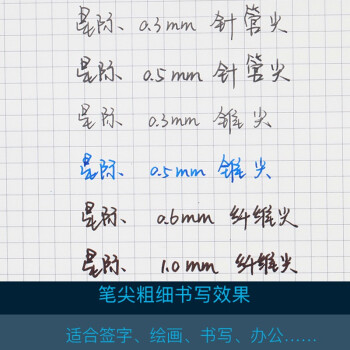 星际、0.3mm 针管尖
星际、0.5mm 针管尖
星际、0.3mm 锥尖
星际、0.5mm 锥尖
星际、0.6mm 纤维尖
星际、1.0mm 纤维尖
笔尖粗细书写效果
适合签字、绘画、书写、办公……